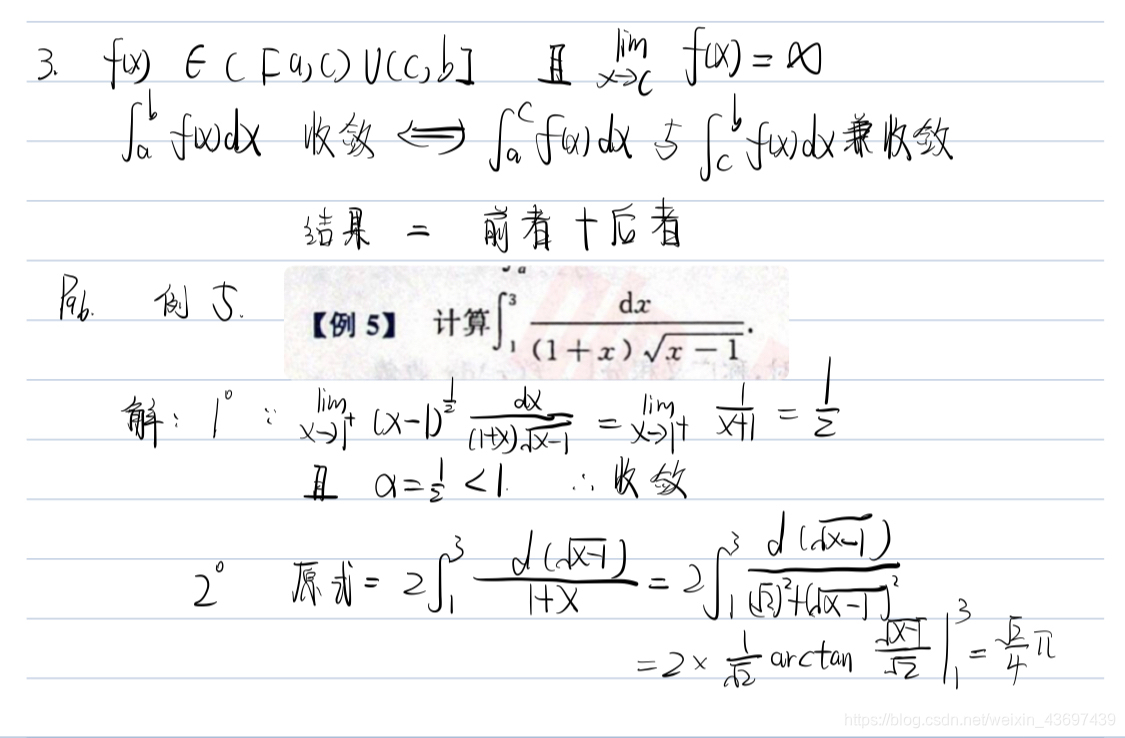 3. f(x) ∈ C[a,c)∪(c,b] 且 lim_{x→c} f(x) = ∞
∫_a^b f(x)dx 收敛 ⟺ ∫_a^c f(x)dx 与 ∫_c^b f(x)dx 兼收敛
结果 = 前者 + 后者
例5.
【例5】 计算∫_1^3 dx/((1+x)√(x-1)).
解: 1° ∵ lim_{x→1^+} (x-1)^{1/2} dx/((1+x)√(x-1)) = lim_{x→1^+} 1/(x+1) = 1/2
且 α=1/2 <1. ∴ 收敛
2° 原式 = 2∫_1^3 d(√(x-1))/(1+x) = 2∫_1^3 d(√(x-1))/((√2)^2+(√(x-1))^2)
= 2 × 1/√2 arctan √(x-1)/√2 |_1^3 = √2/4 π
https://blog.csdn.net/weixin_43697439